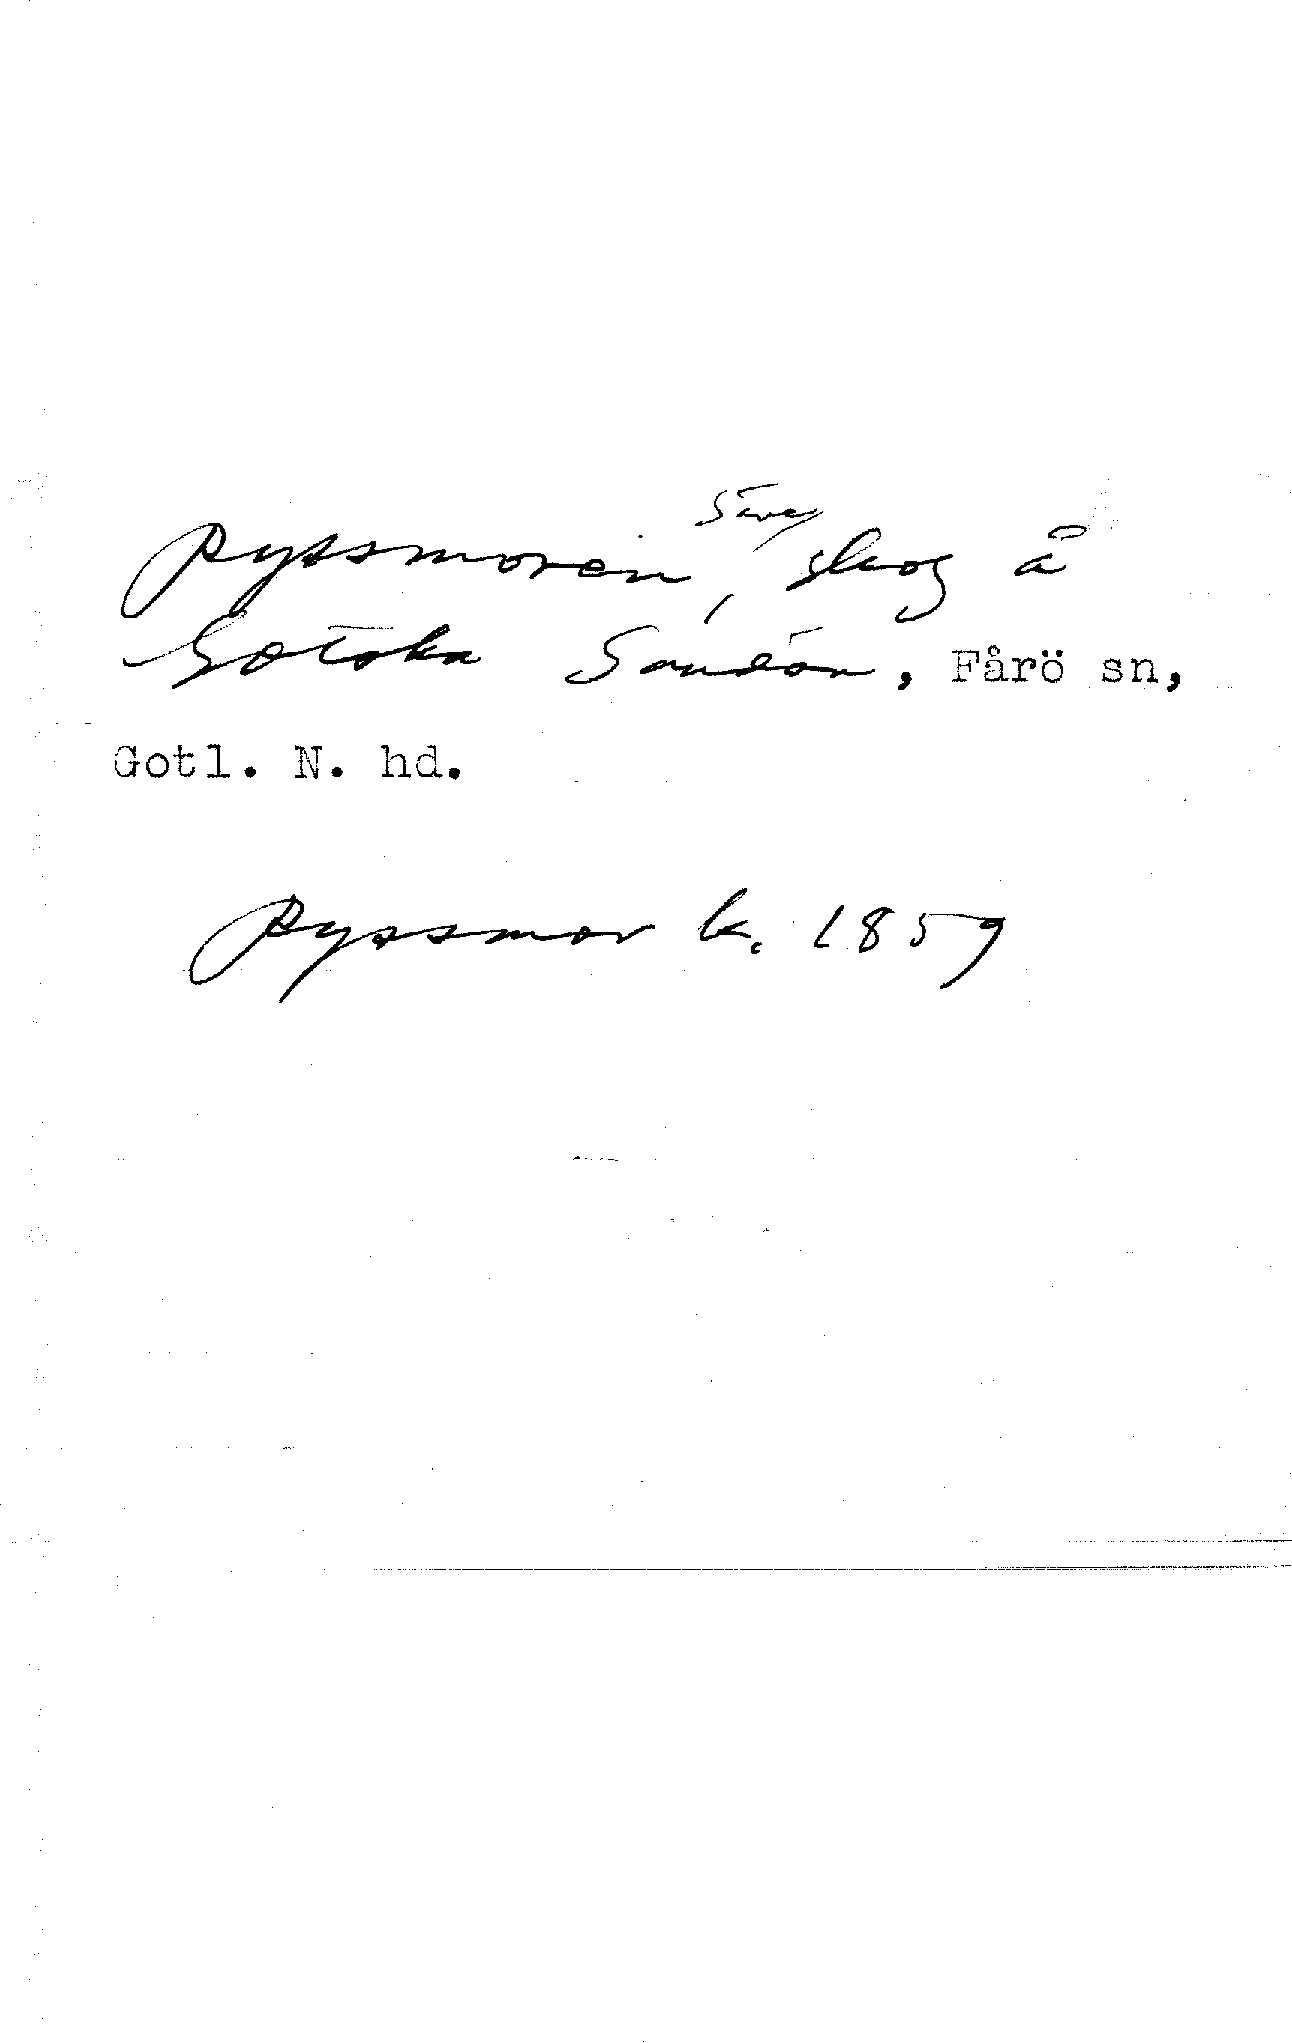 Ryssmoren, Säve, skog å
Gotska Sandön, Fårö sn,
Gotl. N. hd.
Ryssmor k. 1859